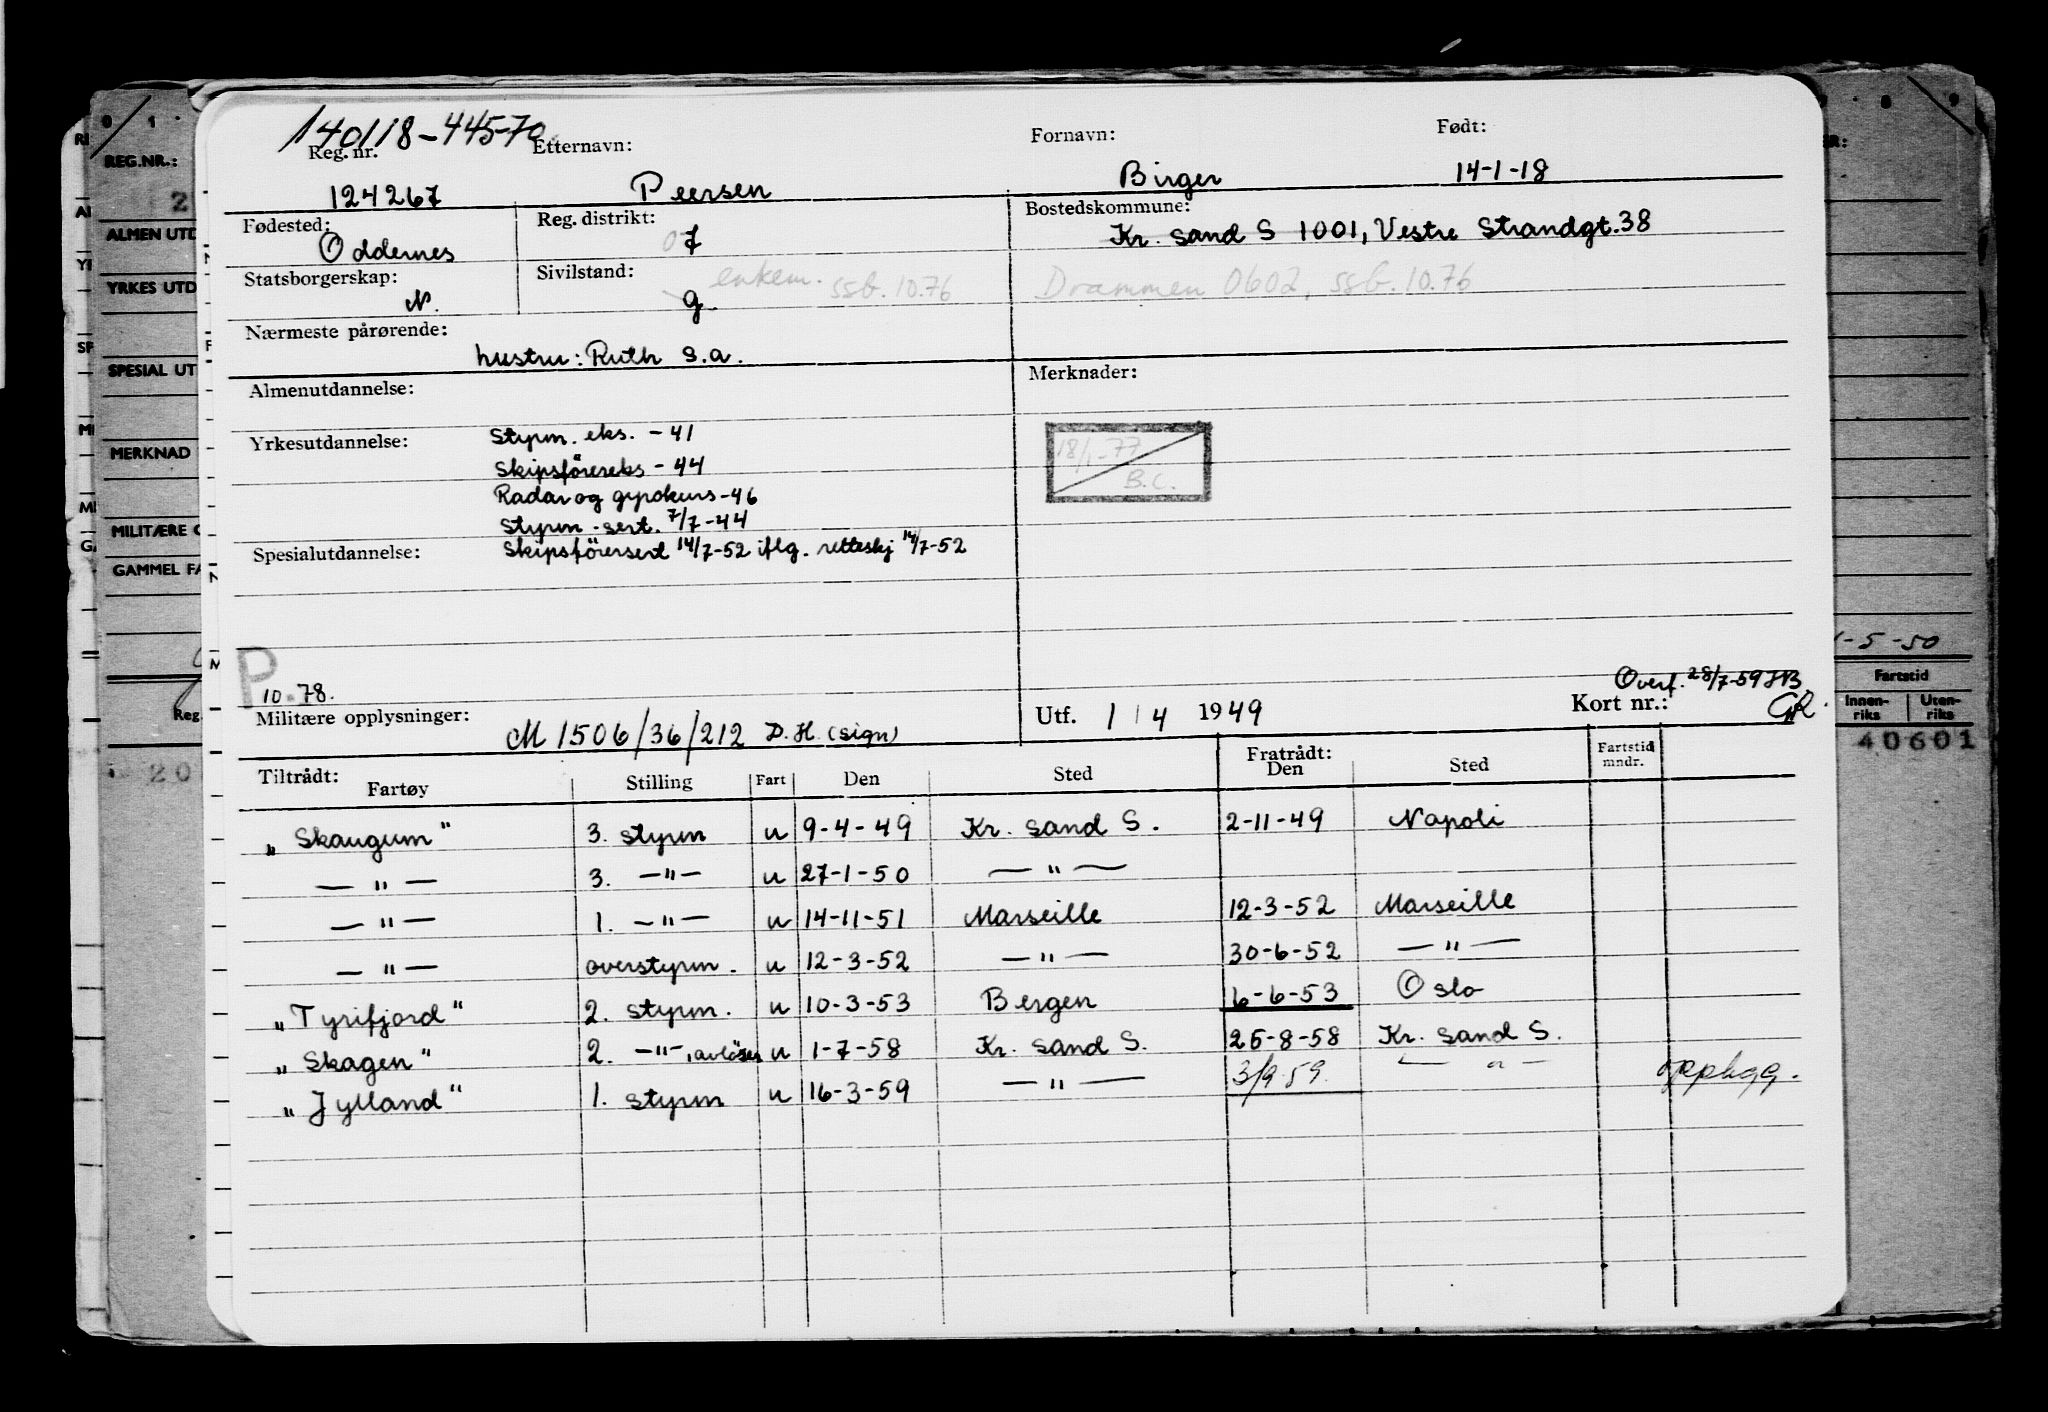 140118-445-70
Reg. nr. Etternavn: Fornavn: Født:
124267 Peersen Birger 14-1-18
Fødested: Reg. distrikt: Bostedskommune:
Oddernes 07 Kr. Sand S 1001, Vestre Strandgt. 38
Statsborgerskap: Sivilstand:
N. g enkem. SSb. 10.76 Drammen 0602, SSb. 10.76
Nærmeste pårørende:
hustru: Ruth S.a.
Almenutdannelse: Merknader:
Yrkesutdannelse: Styrm. eks. - 41
18/1-77
B.C.
Skipsförereks - 44
Radar og gyrokurs - 46
Styrm. sert. 7/7-44
Spesialutdannelse: Skipsförersert 14/7-52 iflg. retteskj 14/7-52
P
10.78.
Overf. 28/7-59 HB
Militære opplysninger: Utf. 1/4 1949 Kort nr.: GR.
M 1506/36/212 D.H. (sign)
Tiltrådt: Fratrådt:
Fartøy Stilling Fart Den Sted Den Sted Fartstid mndr.
„Skaugum" 3. styrm u 9-4-49 Kr. Sand S. 2-11-49 Napoli
— " — 3. — " — u 27-1-50 — " —
— " — 1. — " — u 14-11-51 Marseille 12-3-52 Marseille
— " — overstyrm. u 12-3-52 — " — 30-6-52 — " —
„Tyrifjord" 2. styrm. u 10-3-53 Bergen 6-6-53 Oslo
„Skagen" 2. — " —, avløser u 1-7-58 Kr. Sand S. 25-8-58 Kr. Sand S.
„Jylland" 1. styrm u 16-3-59 — " — 3/9.59. — " — opphugg.
0 1 8 9
REG.NR.:
2
ALMEN UTD
YRKES UTD
SPESIAL UT
MERKNAD
MILITÆRE
GAMMEL FA
Reg.
20
-5-50
Fartstid
Innen-riks Uten-riks
40601